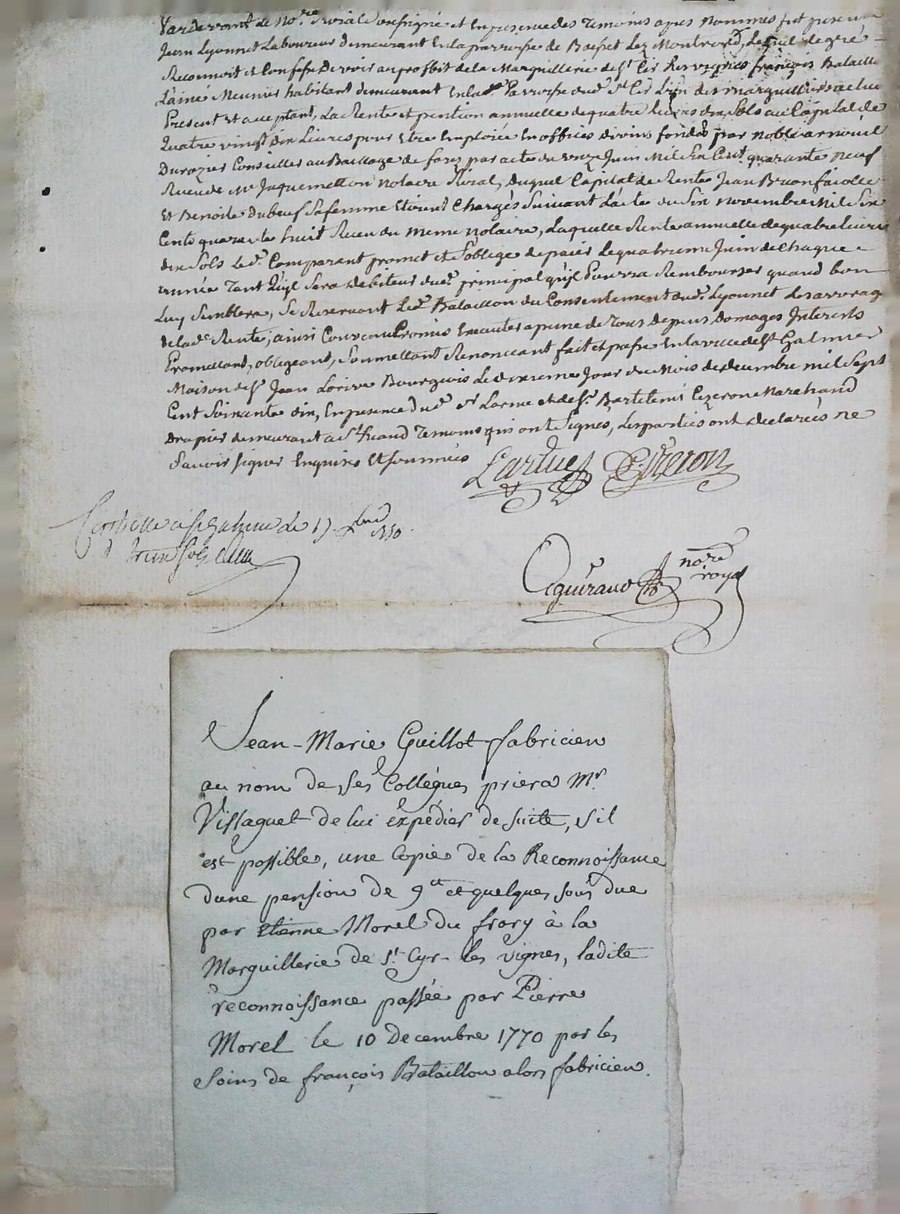 Pardevant le No.re Royal Soussigné et en presence des Temoins apres Nommés fut present
Jean Lyonnet Laboureur demeurant En la parroisse de Boisset Lez Montrond, Lequel de gré
Reconnoit et Confesse Devoir au proffit de la Marguillerie de St Cir Les vignes françois Bataillon
L'ainé Meunier habitant demeurant En lad. Parroisse dud. St Cir L'un des marguilliers a ce lui
Present et acceptant, La Rente et pention annuelle de quatre Livres dix Sols au Capital de
Quatre vingt dix Livres pour Etre Emploiée En offices divins fondés par noble arnoud
Durozier Conseiller au Bailliage de forez par acte du onze Juin Mil Six Cent quarante neuf
Receu de Me Jaquemetton Notaire Roial, duquel Capital de Rente Jean
Et Benoite Dubeuf Sa femme Etoient Chargés Suivant L'acte du Six novembre Mil Six
Cents quarante huit Receu du Meme Notaire, Laquelle Rente annuelle de quatre Livres
dix Sols Led. Comparant promet et S'oblige de paier Le quatrieme Juin de Chaque
année Tant qu'il Sera debiteur dud. principal qu'il Pourra Rembourser quand bon
Luy Semblera, Se Reservant Led. Bataillon du Consentement dud. Lyonnet Les arrerages
de lad. Rente, ainsi Convenu Promis Executer a peine de Tous Depens Domages Interests
Promettant, obligeant, Soumettant Renonceant fait et passé En la ville de St Galmier
Maison de Sr Jean Lorive Bourgeois Le dixieme Jour du Mois de decembre mil Sept
Cent Soixante dix, En presence du Sr Larme et de Sr Bartelemi Ezeron Marchand
Drapier demeurant a St Temoins qui ont Signés, Les parties ont declarés ne
Savoir signer Enquises Et Sommées
Eyzeron
17 xbre 1770
no.re
royal
Jean-Marie Guillot fabricien
au nom de ses Collégues priera Mr
Vissaguet de lui expédier de suite, s'il
est possible, une Copie de la Reconnoissance
d'une pension de 9tt et quelques sous due
par Etienne Morel du frory à la
Marguillerie de St Cyr les vignes, ladite
reconnoissance passée par Pierre
Morel le 10 decembre 1770 par les
soins de françois Bataillon alors fabricien.